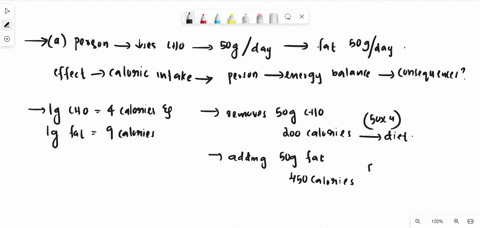 →(a) person → ↓ies CHO → 50g/day → fat 50g/day.
effect → caloric intake → person → energy balance → consequences?
→ 1g CHO = 4 calories &
1g fat = 9 calories
→ removes 50g CHO
(50x4)
200 calories → diet.
→ adding 50g fat
450 calories
100%